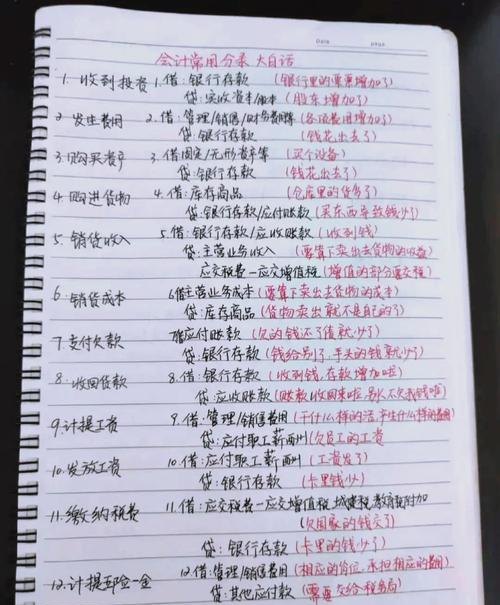 Date page
会计常用分录 大白话
1. 收到投资 1. 借:银行存款 (银行里的票票增加了)
贷:实收资本/股本 (股东增加了)
2 发生费用 2. 借:管理/销售/财务费用等 (各项费用增加了)
贷:银行存款 (钱花出去了)
3. 购买资产 3. 借固定/无形资产等 (买个设备)
贷:银行存款 (钱花出去了)
4. 购进货物 4. 借:库存商品 (仓库里的货多了)
贷:银行存款/应付账款 (买东西导致钱少了)
5. 销货收入 5. 借:银行存款/应收账款 (收到钱)
贷:主营业务收入 (要算下卖出去货物的收益)
应交税费-应交增值税 (增值的部分要交税)
6 销货成本 6借主营业务成本 (要算下卖出去货物的成本)
贷:库存商品 (货物卖出就不是自己的了)
7支付欠款 7借应付账款 (欠的钱还了债就少了)
贷:银行存款 (钱给别了,手头的钱就少了)
8 收回货款 8. 借:银行存款 (收到钱,存款增加啦)
贷:应收账款 (账款收回来啦,别人不欠我钱啦)
9计提工资 9. 借:管理/销售费用 (干什么样的活,产生什么样的费用)
贷:应付职工薪酬州 (欠员工的工资
10.发放工资 10. 借:应付职工薪酬州 (工资发了)
贷:银行存款 (卡里钱少)
11.缴纳税费 11. 借:应交税费-应交增值税,城建税,教育费附加
(欠国家的钱交了)
贷:银行存款 (卡里的钱少了)
12. 计提五险一金 12. 借:管理/销售费用 (相应的岗位,承担相应的费用)
贷:其他应付款 (需要交给税务局)